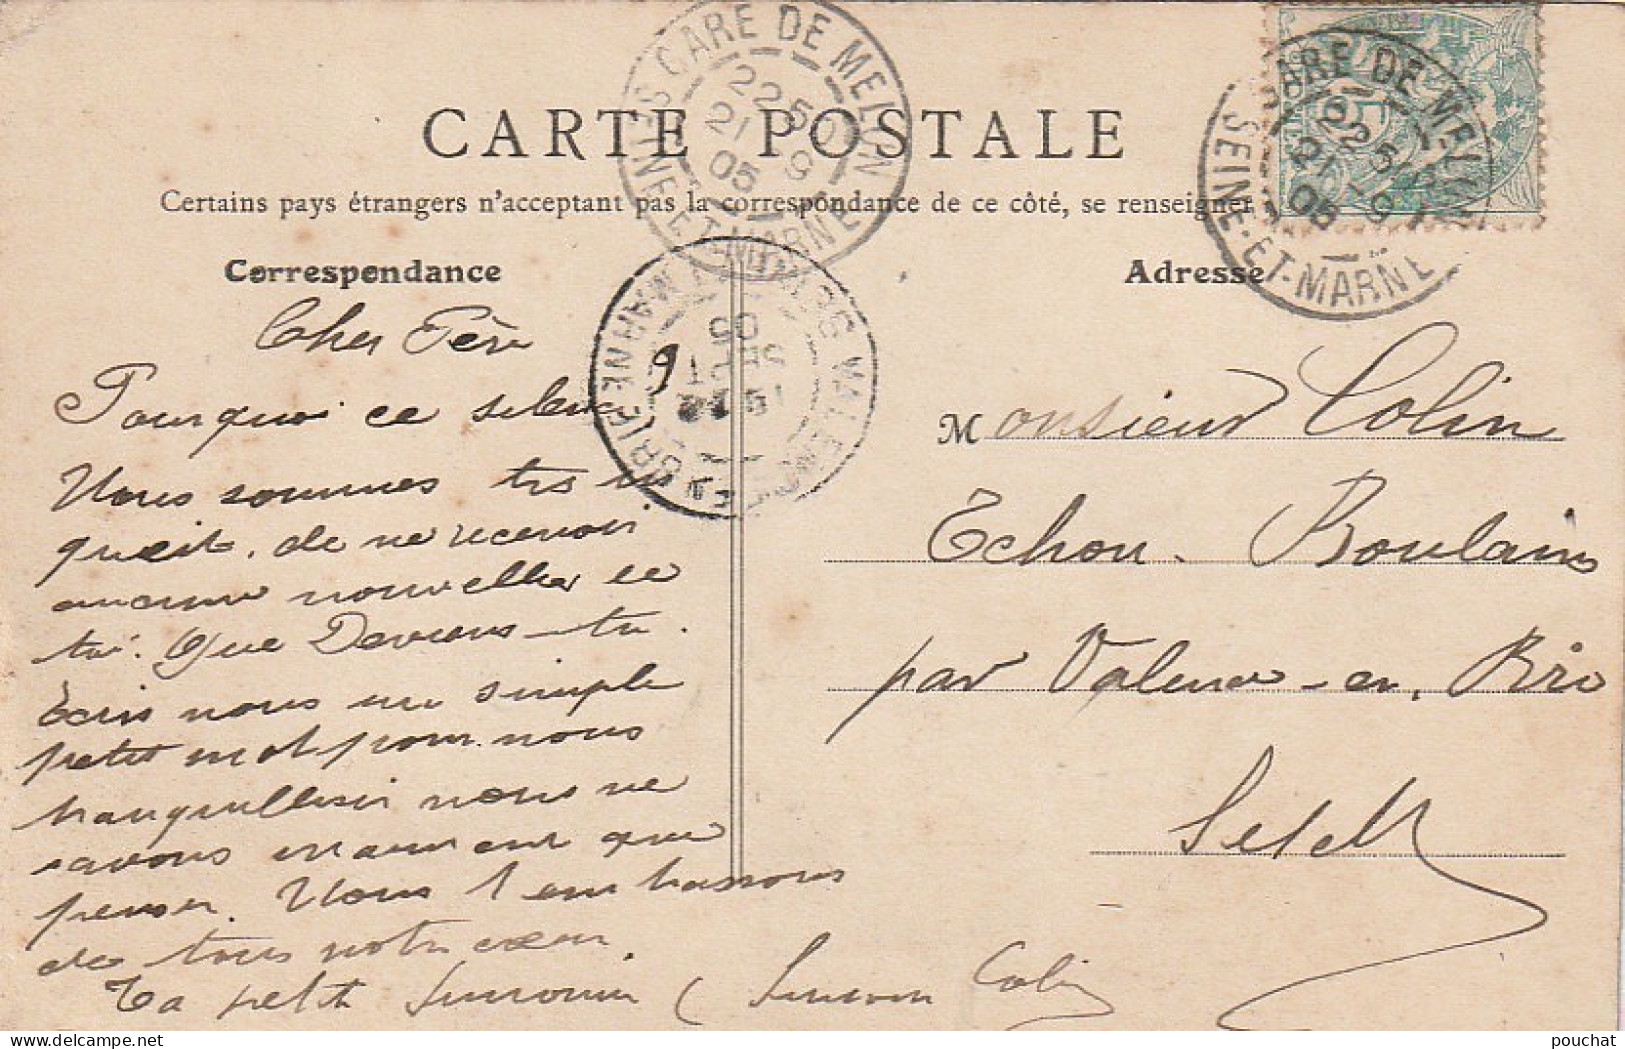 CARTE POSTALE
Certains pays étrangers n'acceptant pas la correspondance de ce côté, se renseigner
Correspondance
Adresse
GARE DE MELUN
22 50
21 9
05
SEINE-ET-MARNE
GARE DE MELUN
21 9
05
SEINE-ET-MARNE
05
SEPT
Cher Père
Pourquoi ce silence
Nous sommes très in
quiets. de ne recevoir
aucune nouvelles de
toi. Que Deviens-tu.
Écris nous un simple
petit mot pour nous
tranquilliser nous ne
savons vraiment que
penser. Nous t'embrassons
de tous notre cœur.
Ta petit
Colin
Monsieur Colin
Echou-Boulains
par Valence-en-Brie
Set M
pouchat